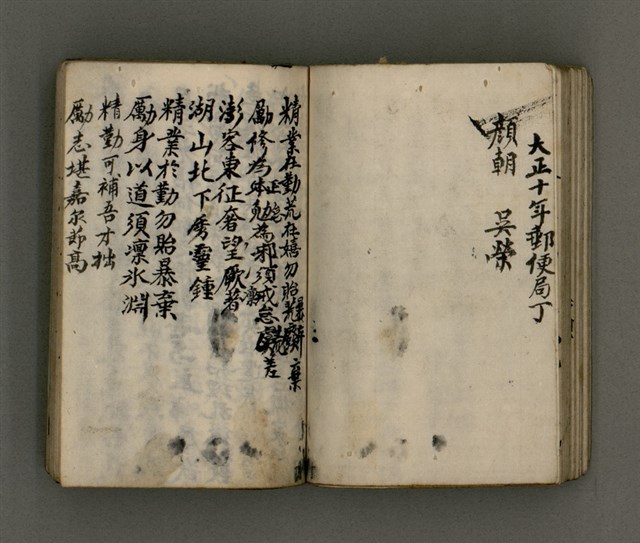 大正十年郵便局丁
顏朝 吳榮
精業在勤荒在嬉勿貽暴棄
勵修為本勉為邪須戒怠差
澎客東征奢望厥著
湖山北下秀靈鍾
精業於勤勿貽暴棄
勵身以道須凛氷淵
精勤可補吾才拙
勵志堪嘉尔節高